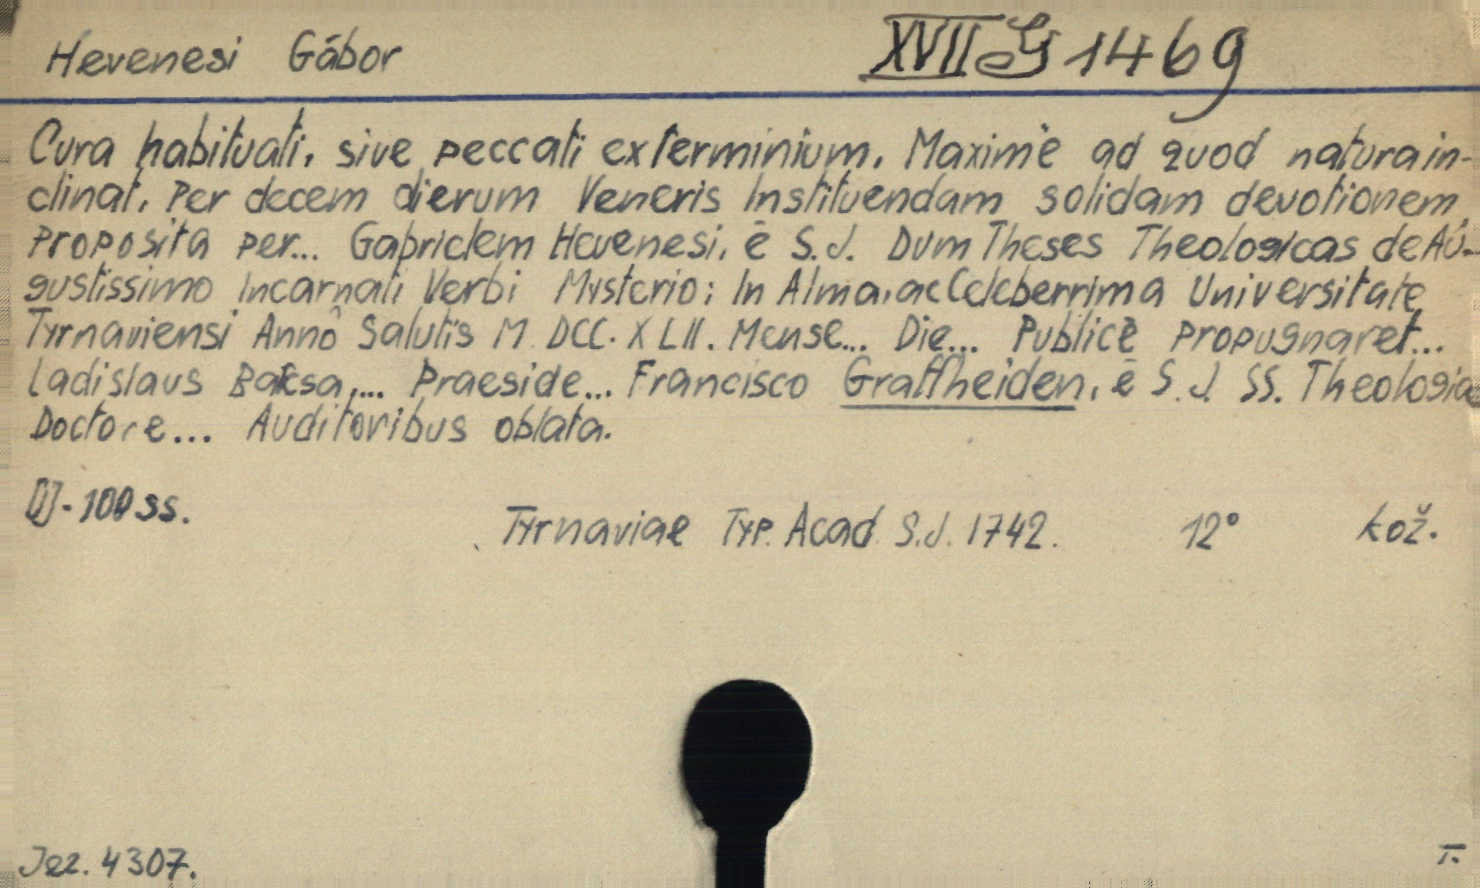 Hevenesi Gábor
XVII G 1469
Cura habituati, sive peccati exterminium. Maximè ad quod natura in-
clinat, Per decem dierum Veneris Instituendam solidam devotionem,
Proposita per... Gabrielem Hevenesi, ē S.J. Dum Theses Theologicas de Au-
gustissimo Incarnati Verbi Mysterio; In Alma, ac Celeberrima Universitate
Tyrnaviensi Annô Salutis M DCC. XLII. Mense... Die.... Publicē Propugnaret...
Ladislaus Baksa,... Praeside... Francisco Graffheiden, ē S.J. SS. Theologia
Doctore... Auditoribus oblata.
[]]-100 ss.
Tyrnaviae Typ. Acad S.J. 1742. 12° kož.
Jez. 4307.
T.